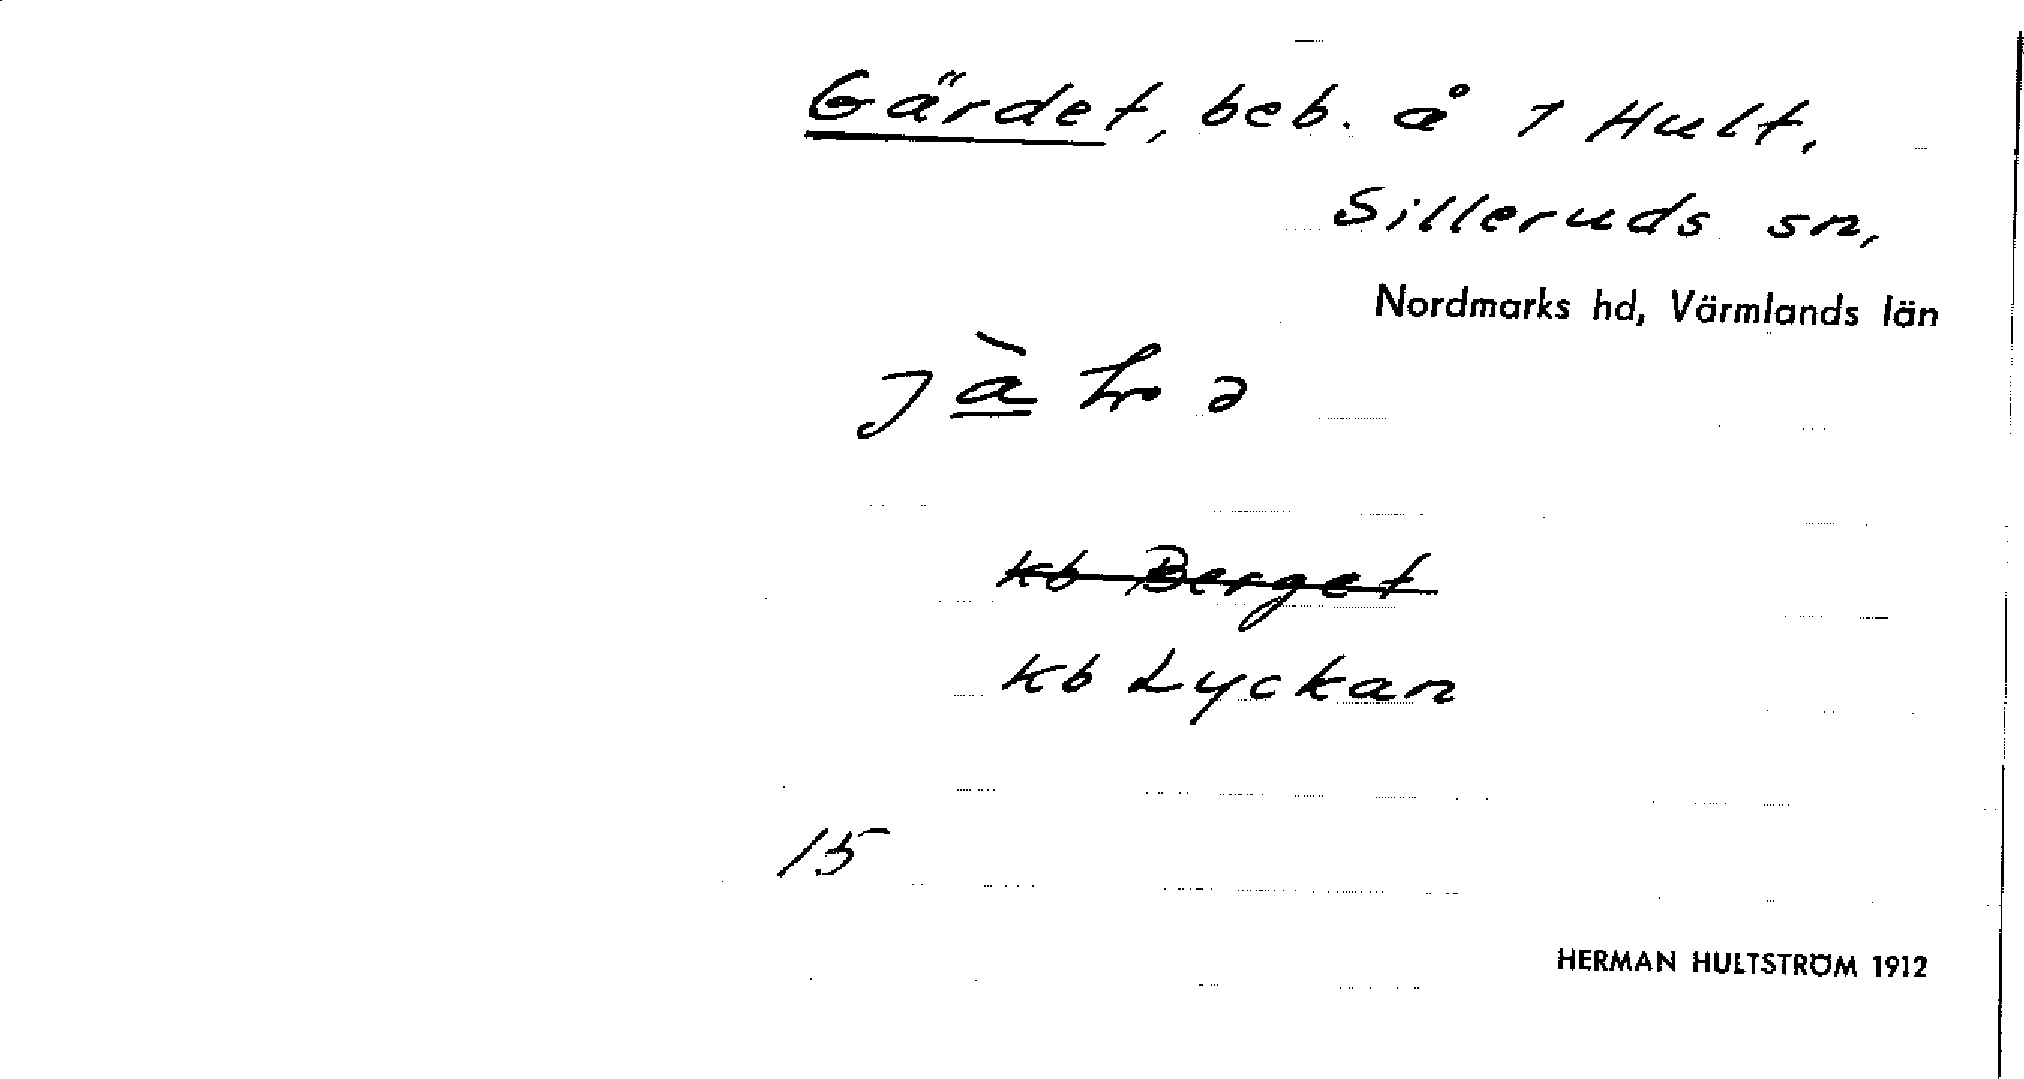 Gärdet, beb. å 7 Hult,
Silleruds sn,
Nordmarks hd, Värmlands län
kb Berget
kb Lyckan
15
HERMAN HULTSTRÖM 1912